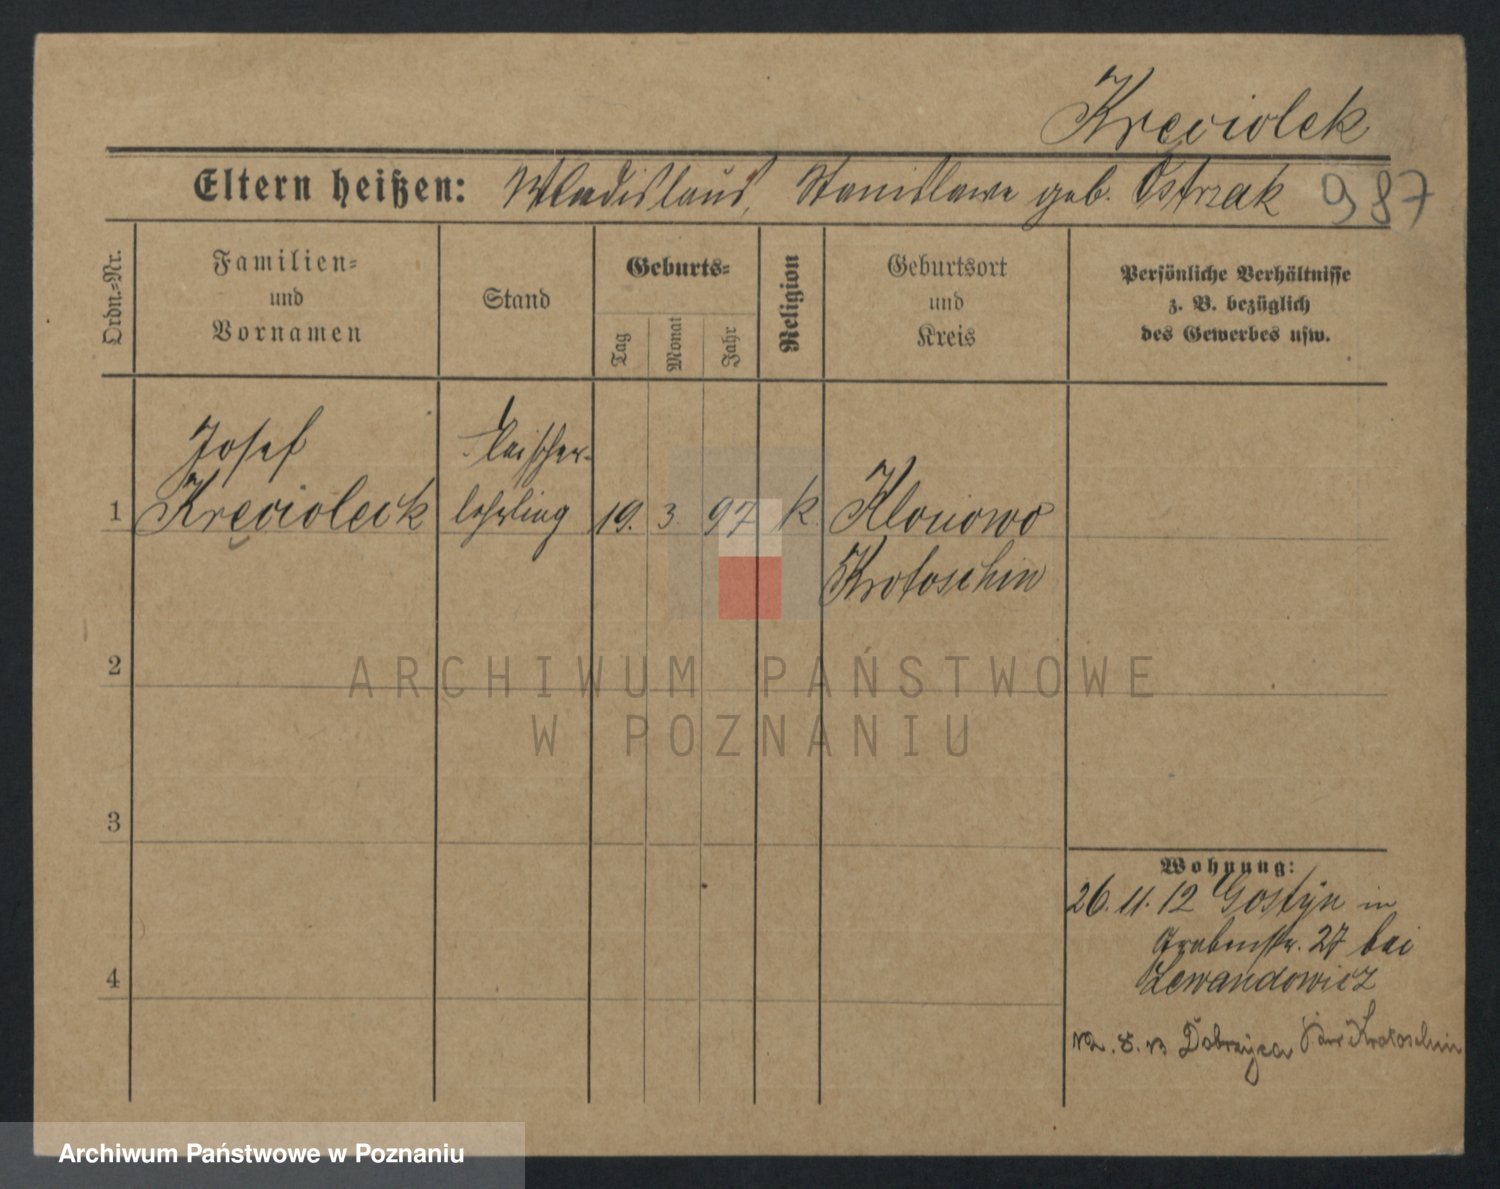 Kręciolek
Eltern heißen: Wladislaus, Stanislawa geb. Ostrzak 987
Ordn.-Nr.
Familien-
und
Vornamen
Stand
Geburts-
Tag
Monat
Jahr
Religion
Geburtsort
und
Kreis
Persönliche Verhältnisse
z. B. bezüglich
des Gewerbes usw.
Josef Fleischer-
1 Kręcioleck lehrling 19. 3. 97 k. Klonowo
Krotoschin
2
3
4
ARCHIWUM PAŃSTWOWE
W POZNANIU
Wohnung:
26. 11. 12 Gostyn in
Grabenstr. 27 bei
Lewandowicz
Dobrzyca Krotoschin
Archiwum Państwowe w Poznaniu